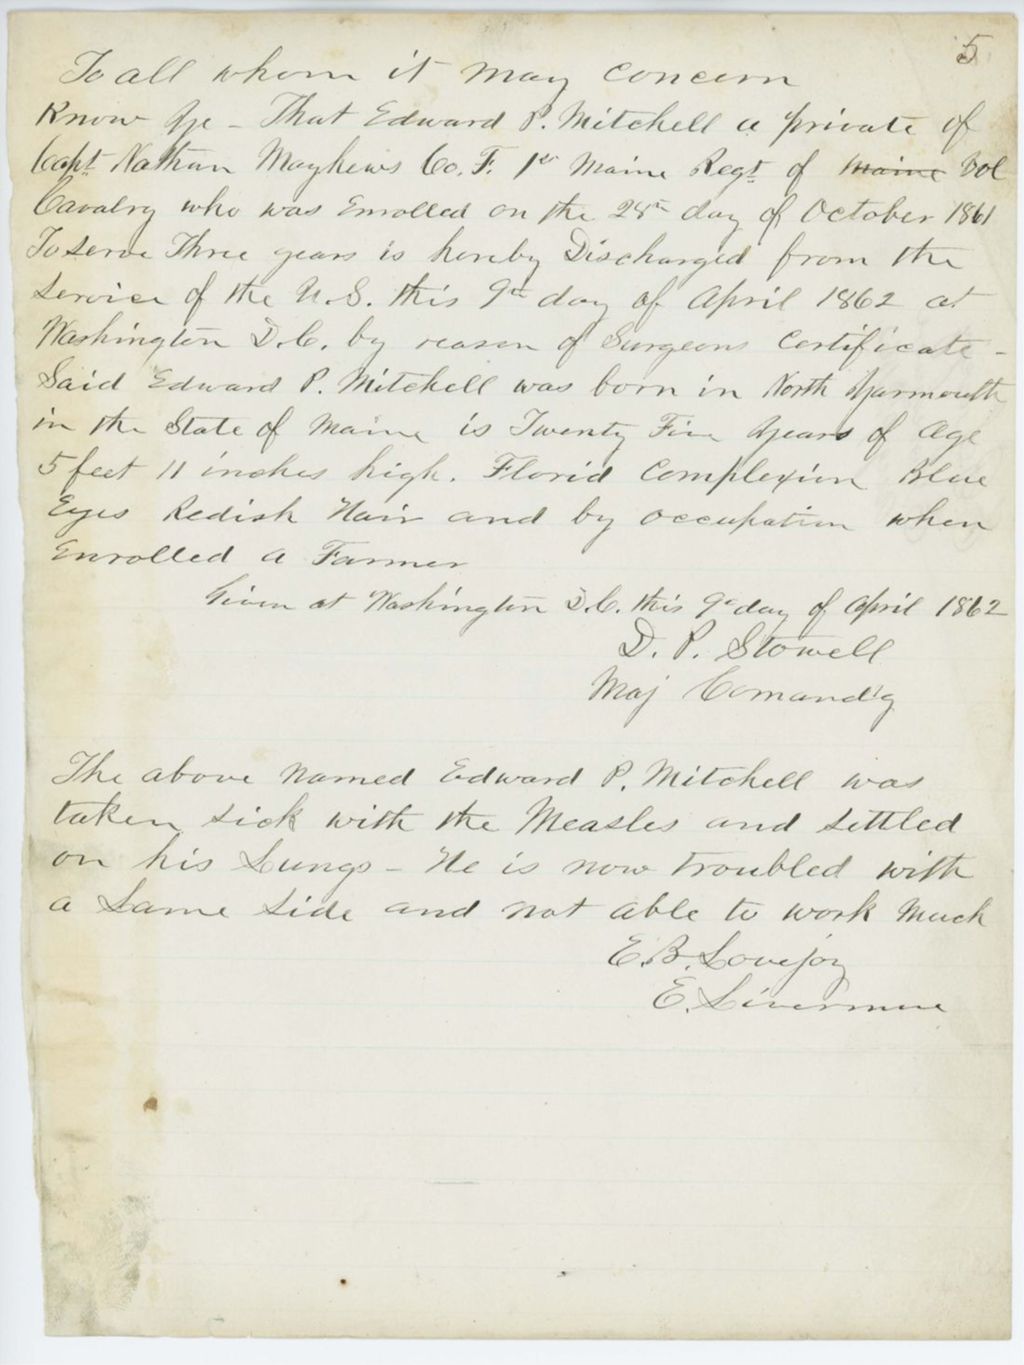 5
To all whom it may concern
Know Ye - That Edward P. Mitchell a private of
Capt Nathan Mayhews Co. F. 1st Maine Regt of Maine Vol
Cavalry who was Enrolled on the 28th day of October 1861
To serve Three years is hereby Discharged from the
Service of the U.S. this 9th day of April 1862 at
Washington D.C. by reason of Surgeons Certificate -
Said Edward P. Mitchell was born in North Yarmouth
in the State of Maine is Twenty Five Years of Age
5 feet 11 inches high. Florid Complexion Blue
Eyes Redish Hair and by occupation when
Enrolled a Farmer
Given at Washington D.C. this 9th day of April 1862
D. P. Stowell
Maj Comand'g
The above named Edward P. Mitchell was
taken sick with the Measles and settled
on his Lungs - He is now troubled with
a Lame side and not able to work Much
E. B. Lovejoy
E. Livermore